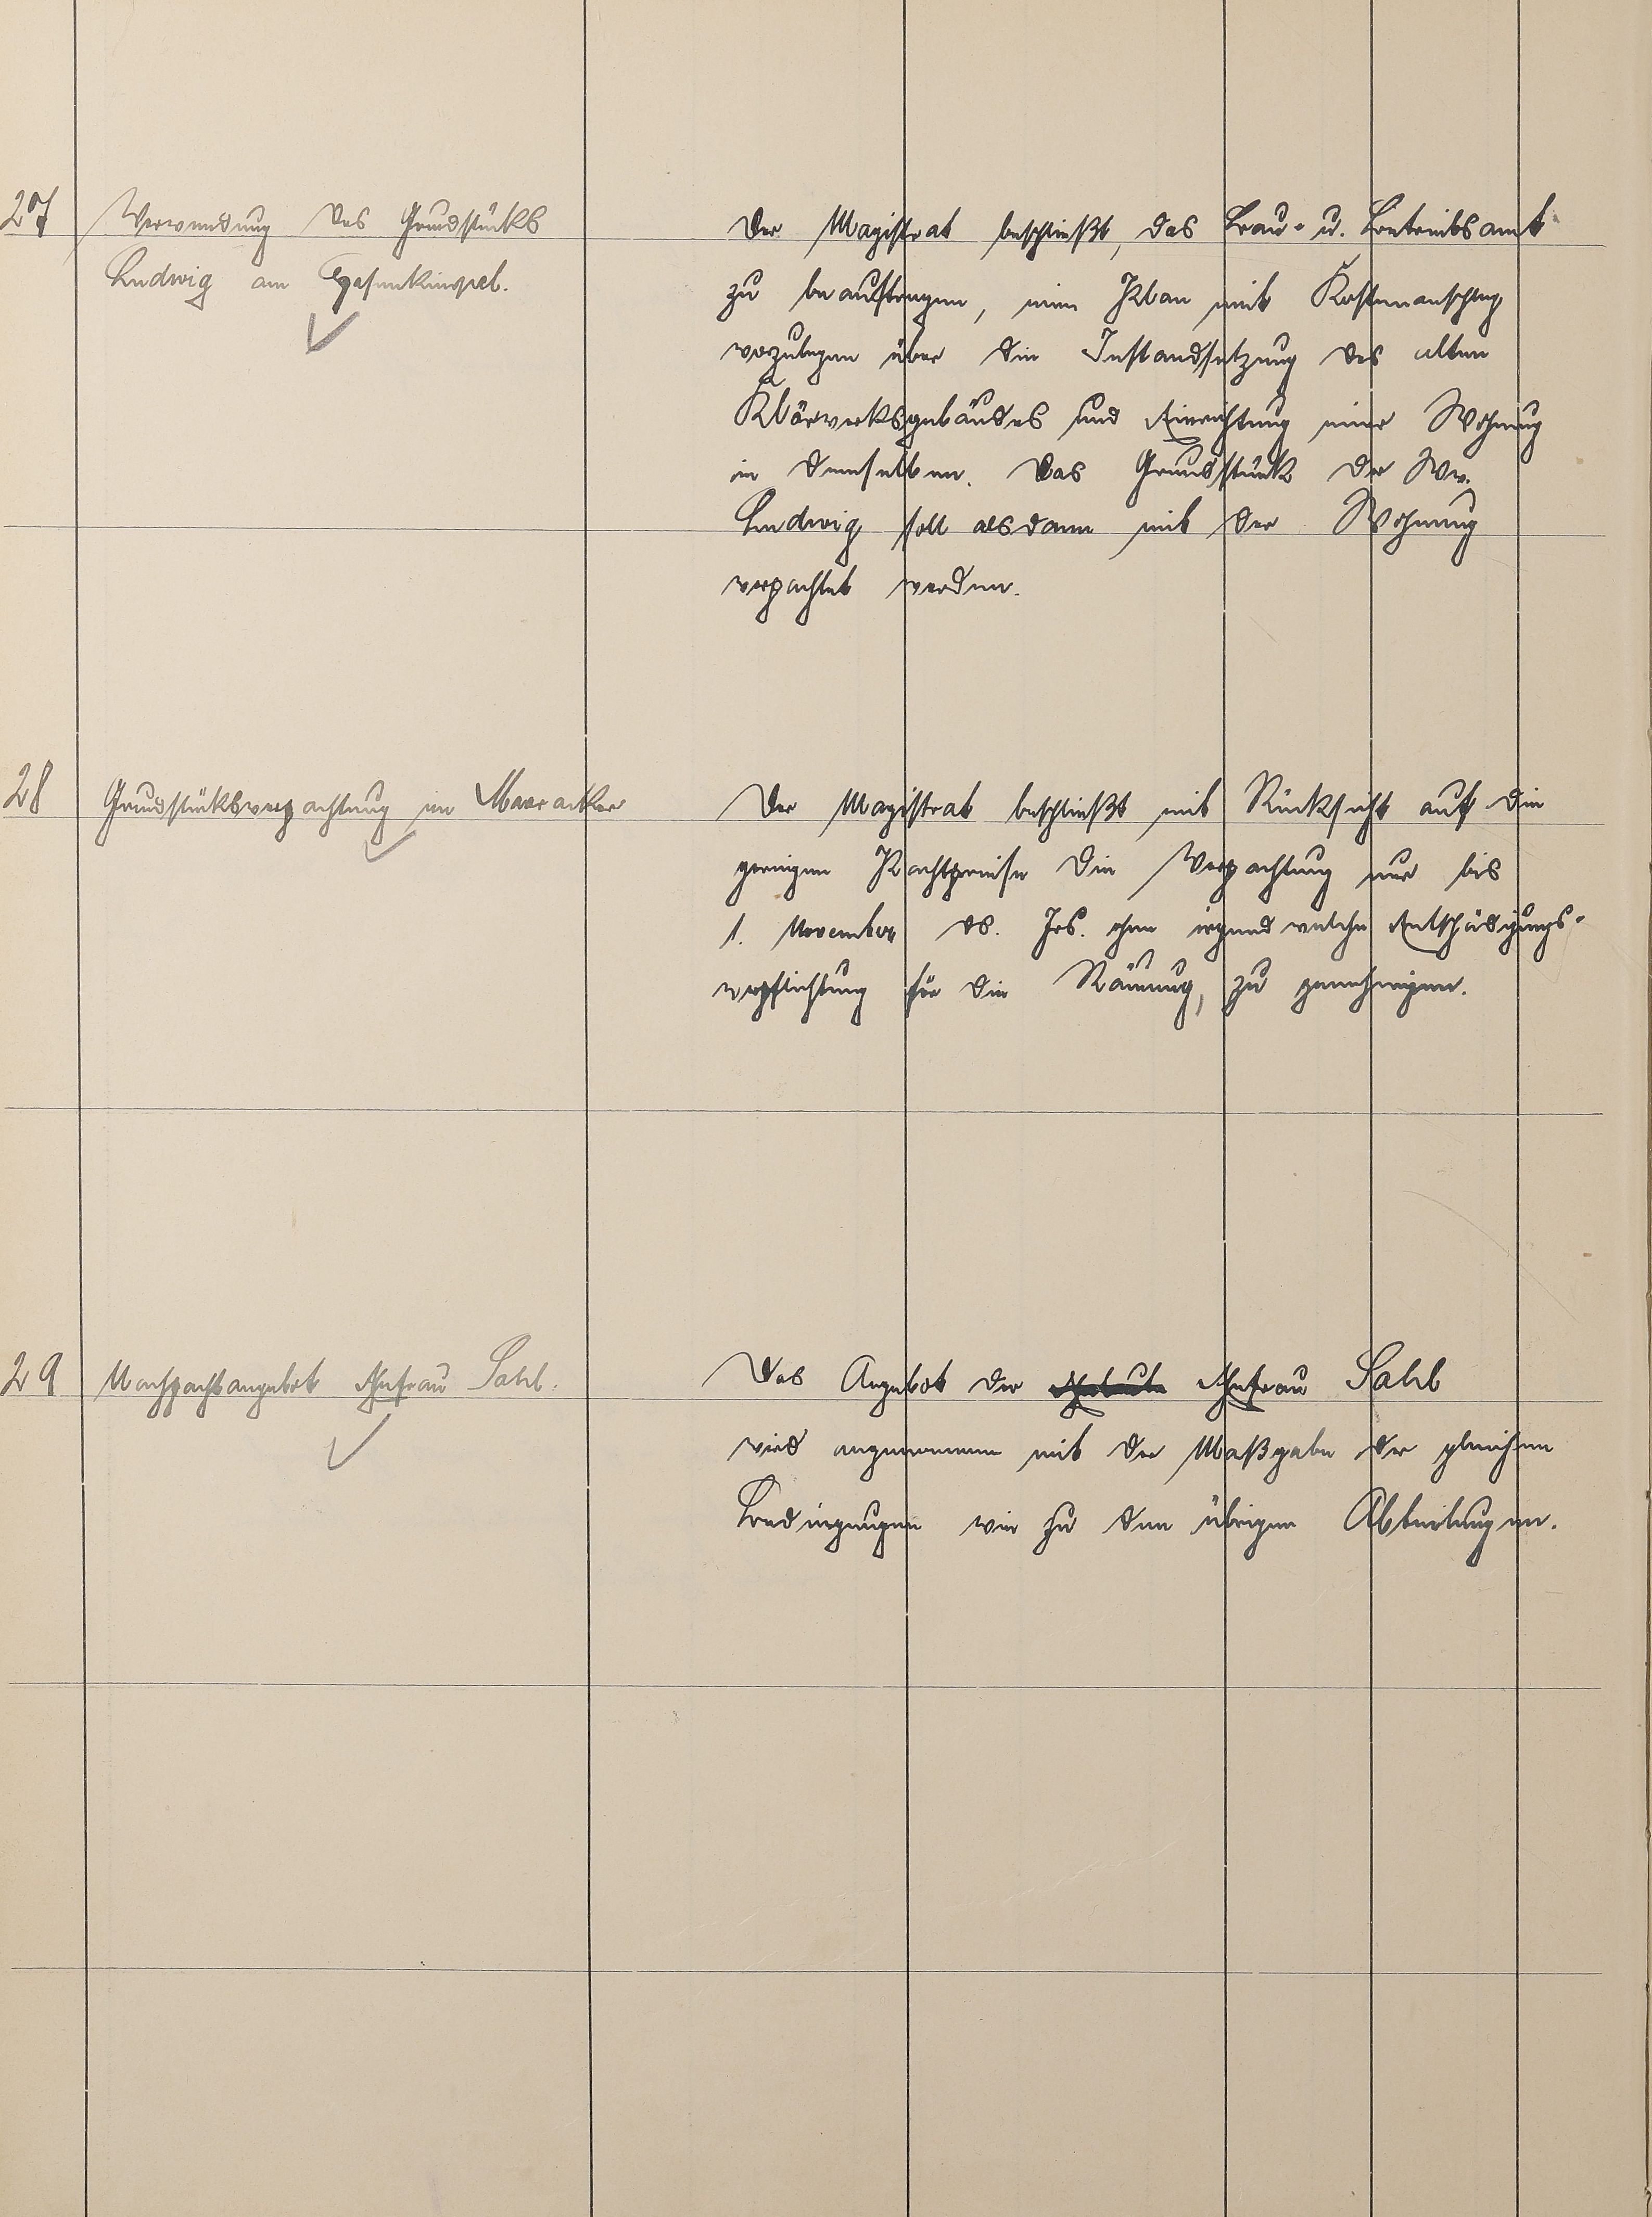 27
Verwendung des Grundstücks
Ludwig am
Der Magistrat beschließt, das Bau- u. Betriebsamt
zu beauftragen, einen Plan mit Kostenanschlag
vorzulegen über die Instandsetzung des alten
Klärwerksgebäudes und Einrichtung einer Wohnung
in demselben. Das Grundstück der Ww.
Ludwig soll alsdann mit der Wohnung
verpachtet werden.
28
Grundstücksverpachtung im Maaracker
Der Magistrat beschließt mit Rücksicht auf die
geringen Pachtpreise die Verpachtung nur bis
1. November ds. Jrs. ohne irgend welche Entschädigungs-
verpflichtung für die Räumung, zu genehmigen.
29
Nachpachtangebot Ehefrau Sahl.
Das Angebot der Ehefrau Sahl
wird angenommen mit der Maßgabe der gleichen
Bedingungen wie zu den übrigen Abteilungen.